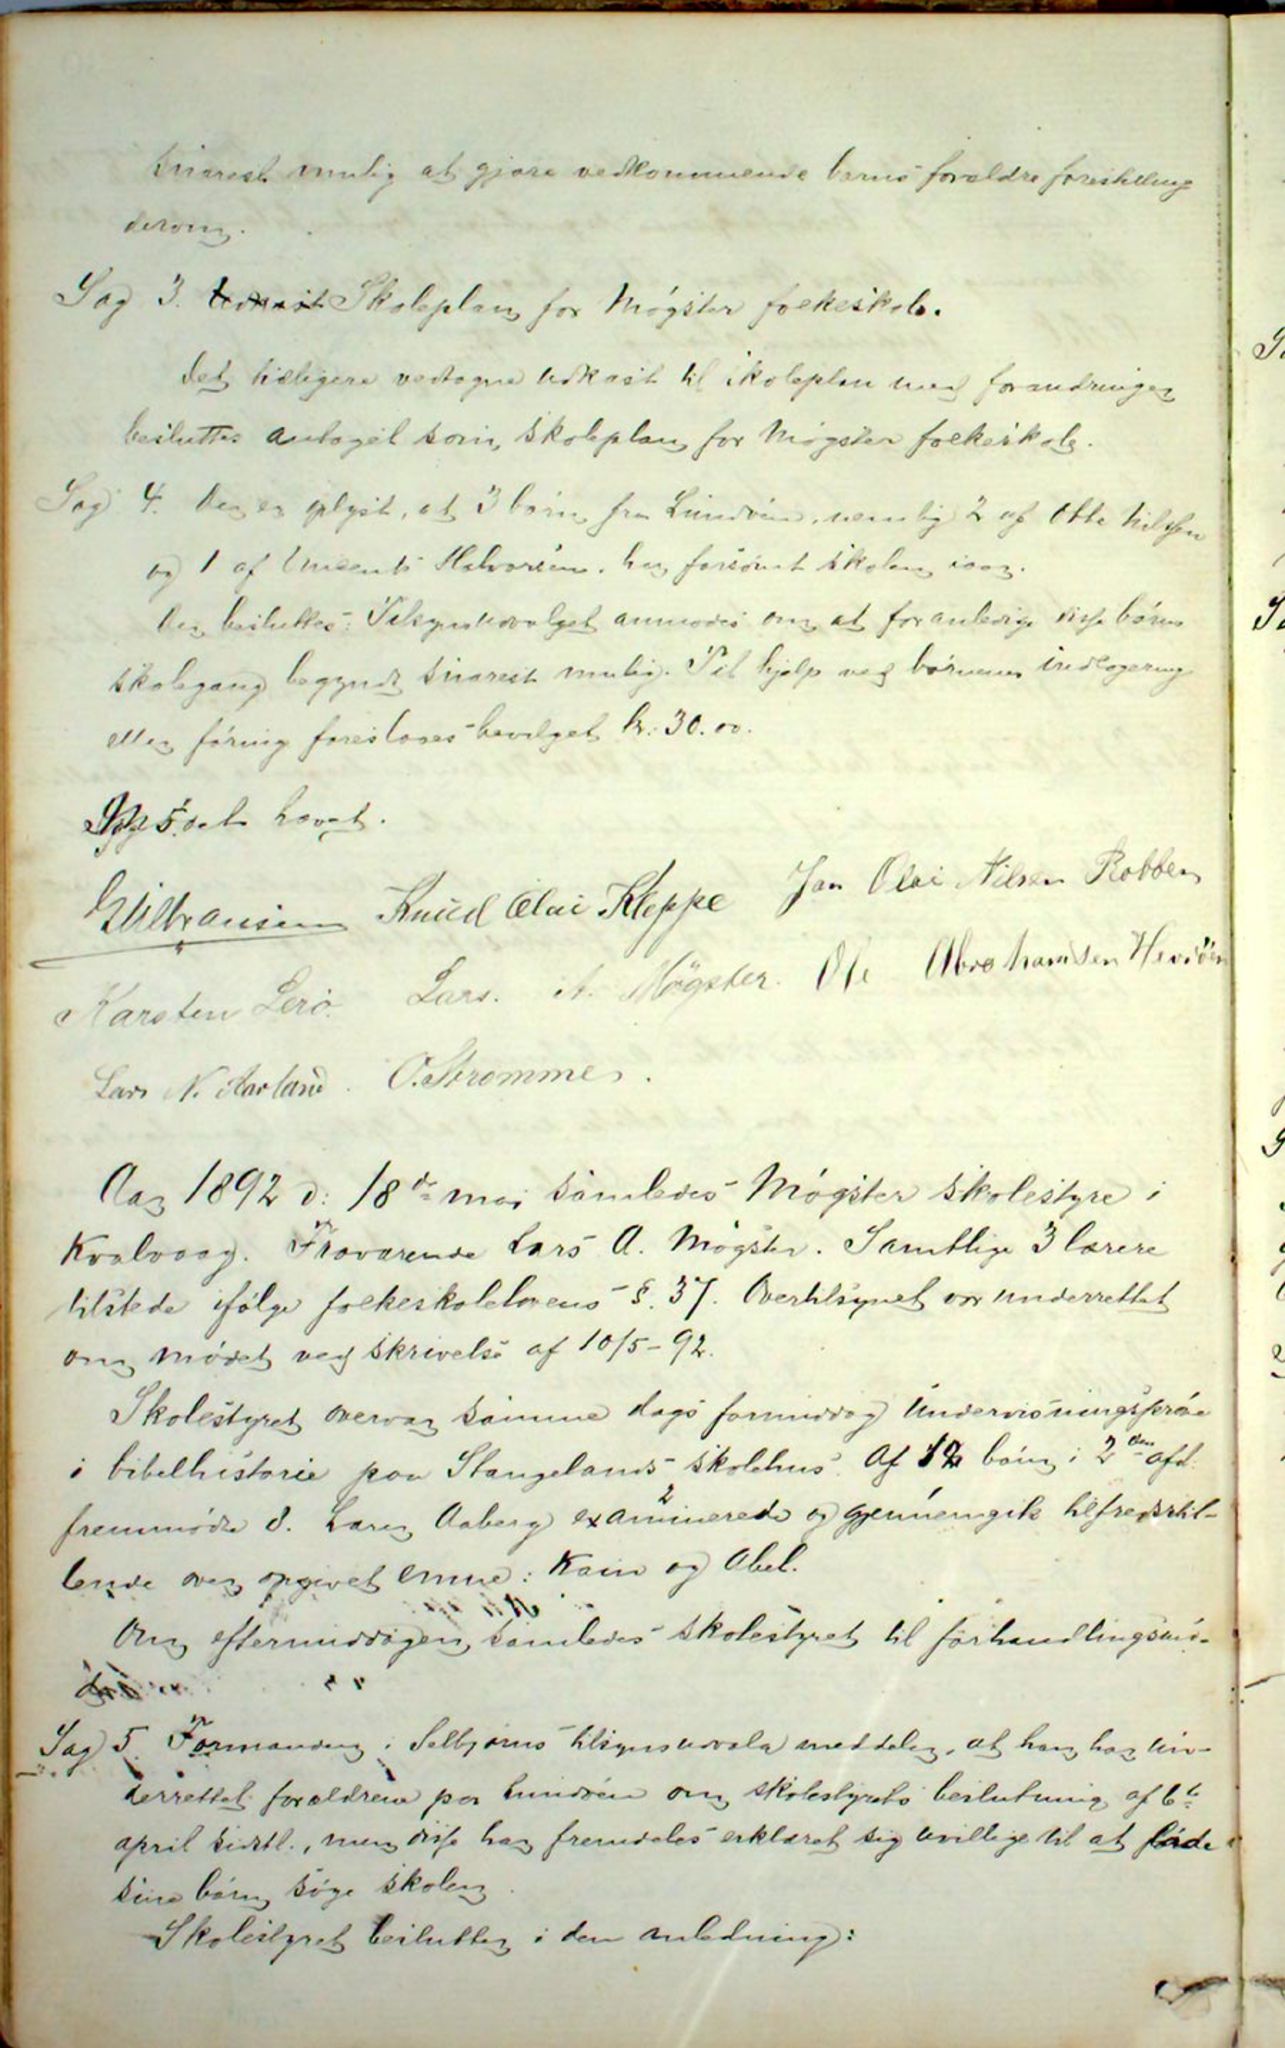 snarest mulig at gjøre vedkommende barns forældre forestilling
derom.
Sag 3. Skoleplan for Møgster folkeskole.
Det tidligere vedtagne udkast til skoleplan med forandringer
besluttes antaget som skoleplan for Møgster folkeskole.
Sag 4. Der er oplyst, at 3 børn fra Lundøen, nemlig 2 af Otte Nilsen
og 1 af Halvorsen, har forsømt skolen iaar.
Der besluttes: Tilsynsudvalget anmodes om at foranledige disse børns
skolegang begyndt snarest mulig. Til hjelp ved børnenes indlogering
eller føring foreslaaes bevilget kr. 30.00.
Mødet hævet.
Knud Olai Kleppe Jan Olai Nilsen Robben
Karsten Lerø. Lars. A. Møgster. Ole Abrahamsen Hevrøen
Lars N. Aarland. O. Strømmen.
Aar 1892 d: 18de mai samledes Møgster skolestyre i
Kvalvaag. Fraværende Lars A. Møgster. Samtlige 3 lærere
tilstede ifølge folkeskolelovens §. 37. Overtilsynet var underrettet
om mødet ved skrivelse af 10/5-92.
Skolestyret overvar samme dags formiddag undervisningsprøve
i bibelhistorie paa Stangelands skolehus. Af 12 børn i 2den afd.
fremmødte 8. Lærer Aaberg examinerede og gjennemgik tilfredsstil-
lende over opgivet emne: Kain og Abel.
Om eftermiddagen samledes skolestyret til forhandlingsmø-
de
Sag 5. Formanden i Selbjørns tilsynsudvalg meddeler, at han har un-
derrettet forældrene paa Lundøen om skolestyrets beslutning af 6te
april sidstl., men disse har fremdeles erklæret sig uvillige til at lade
sine børn søge skolen.
Skolestyret beslutter i den anledning: